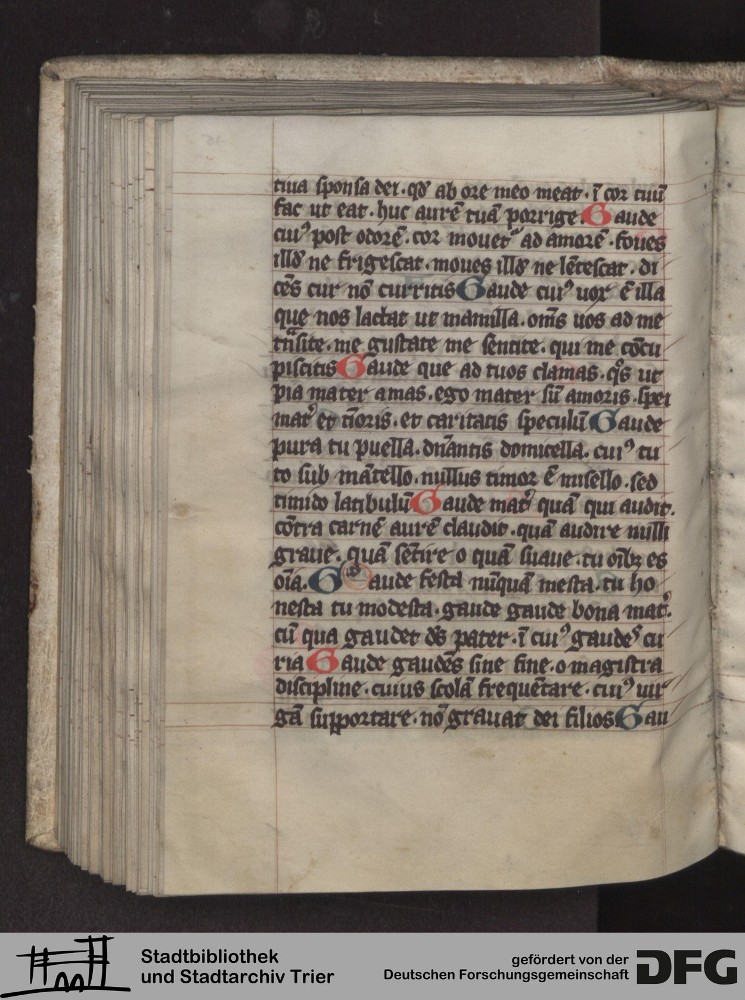 tiua sponsa dei. qd̛ ab ore meo meat. ī cor tuū
fac ut eat. huc aurē tuā porrige. Gaude
cui᷒ post odorē. cor mouet᷑ ad amorē. foues
illd̛ ne frigescat. moues illd̛ ne lētescat. di
cēs cur nō curritis Gaude cui᷒ uox ē illa
que nos lactat ut mamilla. om̄s uos ad me
trᷓsite. me gustate me sentite. qui me cōcu
piscitis Gaude que ad tuos clamas. qͦs ut
pia mater amas. ego mater sū amoris. spei
mat᷑ et tīoris. et caritatis speculū Gaude
pura tu puella. dn̄antis domicella. cui᷒ tu
to sub mātello. nullus timor ē misello. sed
timido latibulū Gaude mat᷑ quā qui audit.
cōtra carnē aurē claudit. quā audire nulli
graue. quā sētire o quā suaue. tu oīb; es
oīa. Gaude festa nūquā mesta. tu ho
nesta tu modesta. gaude gaude bona mat᷑.
cū qua gaudet ds̄ pater. ī cui᷒ gaudes᷑ cu
ria Gaude gaudēs sine fine. o magistra
discipline. cuius scolā frequētare. cui᷒ uir
gā supportare. nō grauat dei filios Gau
Stadtbibliothek
und Stadtarchiv Trier
gefördert von der
Deutschen Forschungsgemeinschaft
DFG